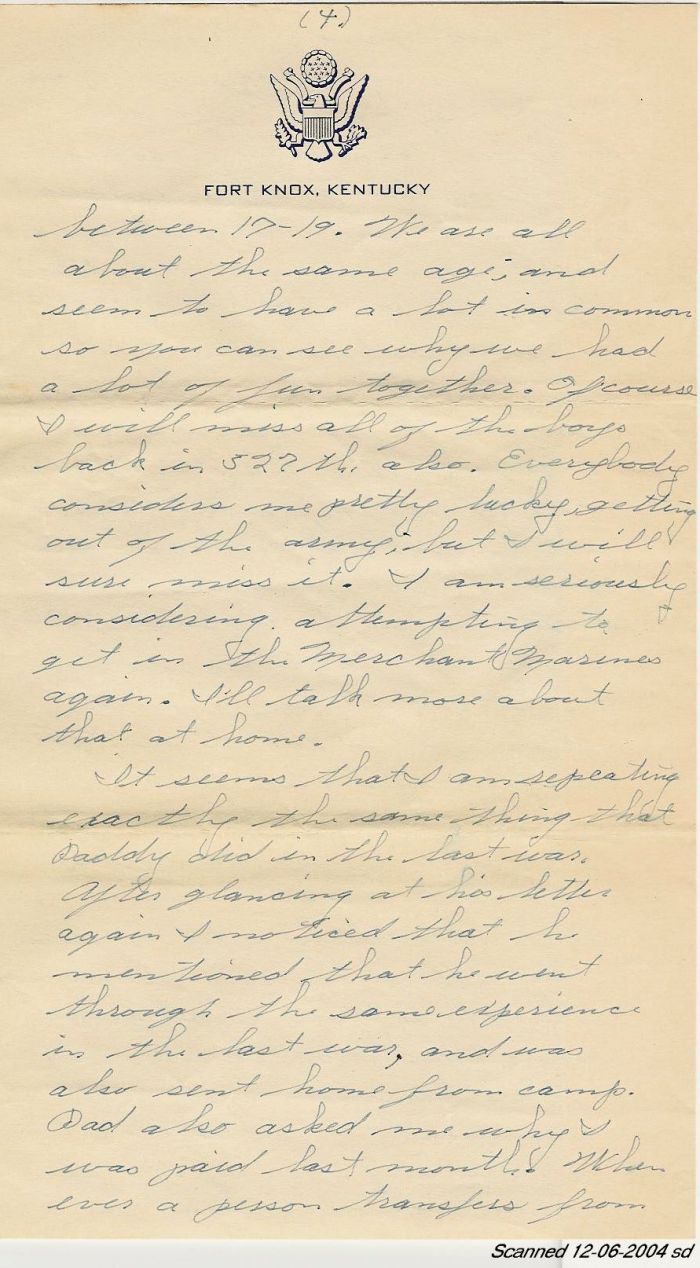 (4.)
FORT KNOX, KENTUCKY
between 17-19. We are all
about the same age, and
seem to have a lot in common
so you can see why we had
a lot of fun together. Of course
I will miss all of the boys
back in 527th. also. Everybody
considers me pretty lucky, getting
out of the army, but I will
sure miss it. I am seriously
considering attempting to
get in the Merchant Marines
again. I'll talk more about
that at home.
It seems that I am repeating
exactly the same thing that
Daddy did in the last war.
After glancing at his letter
again I noticed that he
mentioned that he went
through the same experience
in the last war, and was
also sent home from camp.
Dad also asked me why I
was paid last month. When
ever a person transfers from
Scanned 12-06-2004 sd